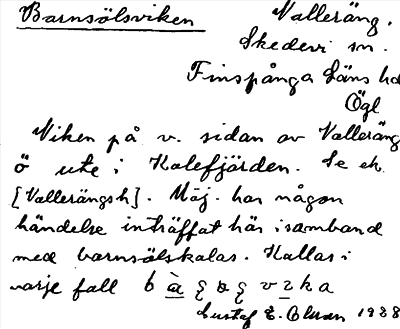 Barnsölsviken Valleräng.
Skedevi sn.
Finspånga Läns hd
Ögl
Viken på v. sidan av Valleräng
ö ute i Kolefjärden. Se ek.
[Vallerängsh]. Möj. har någon
händelse inträffat här i samband
med barnsölskalas. Kallas i
varje fall b
Gustaf E. 1928